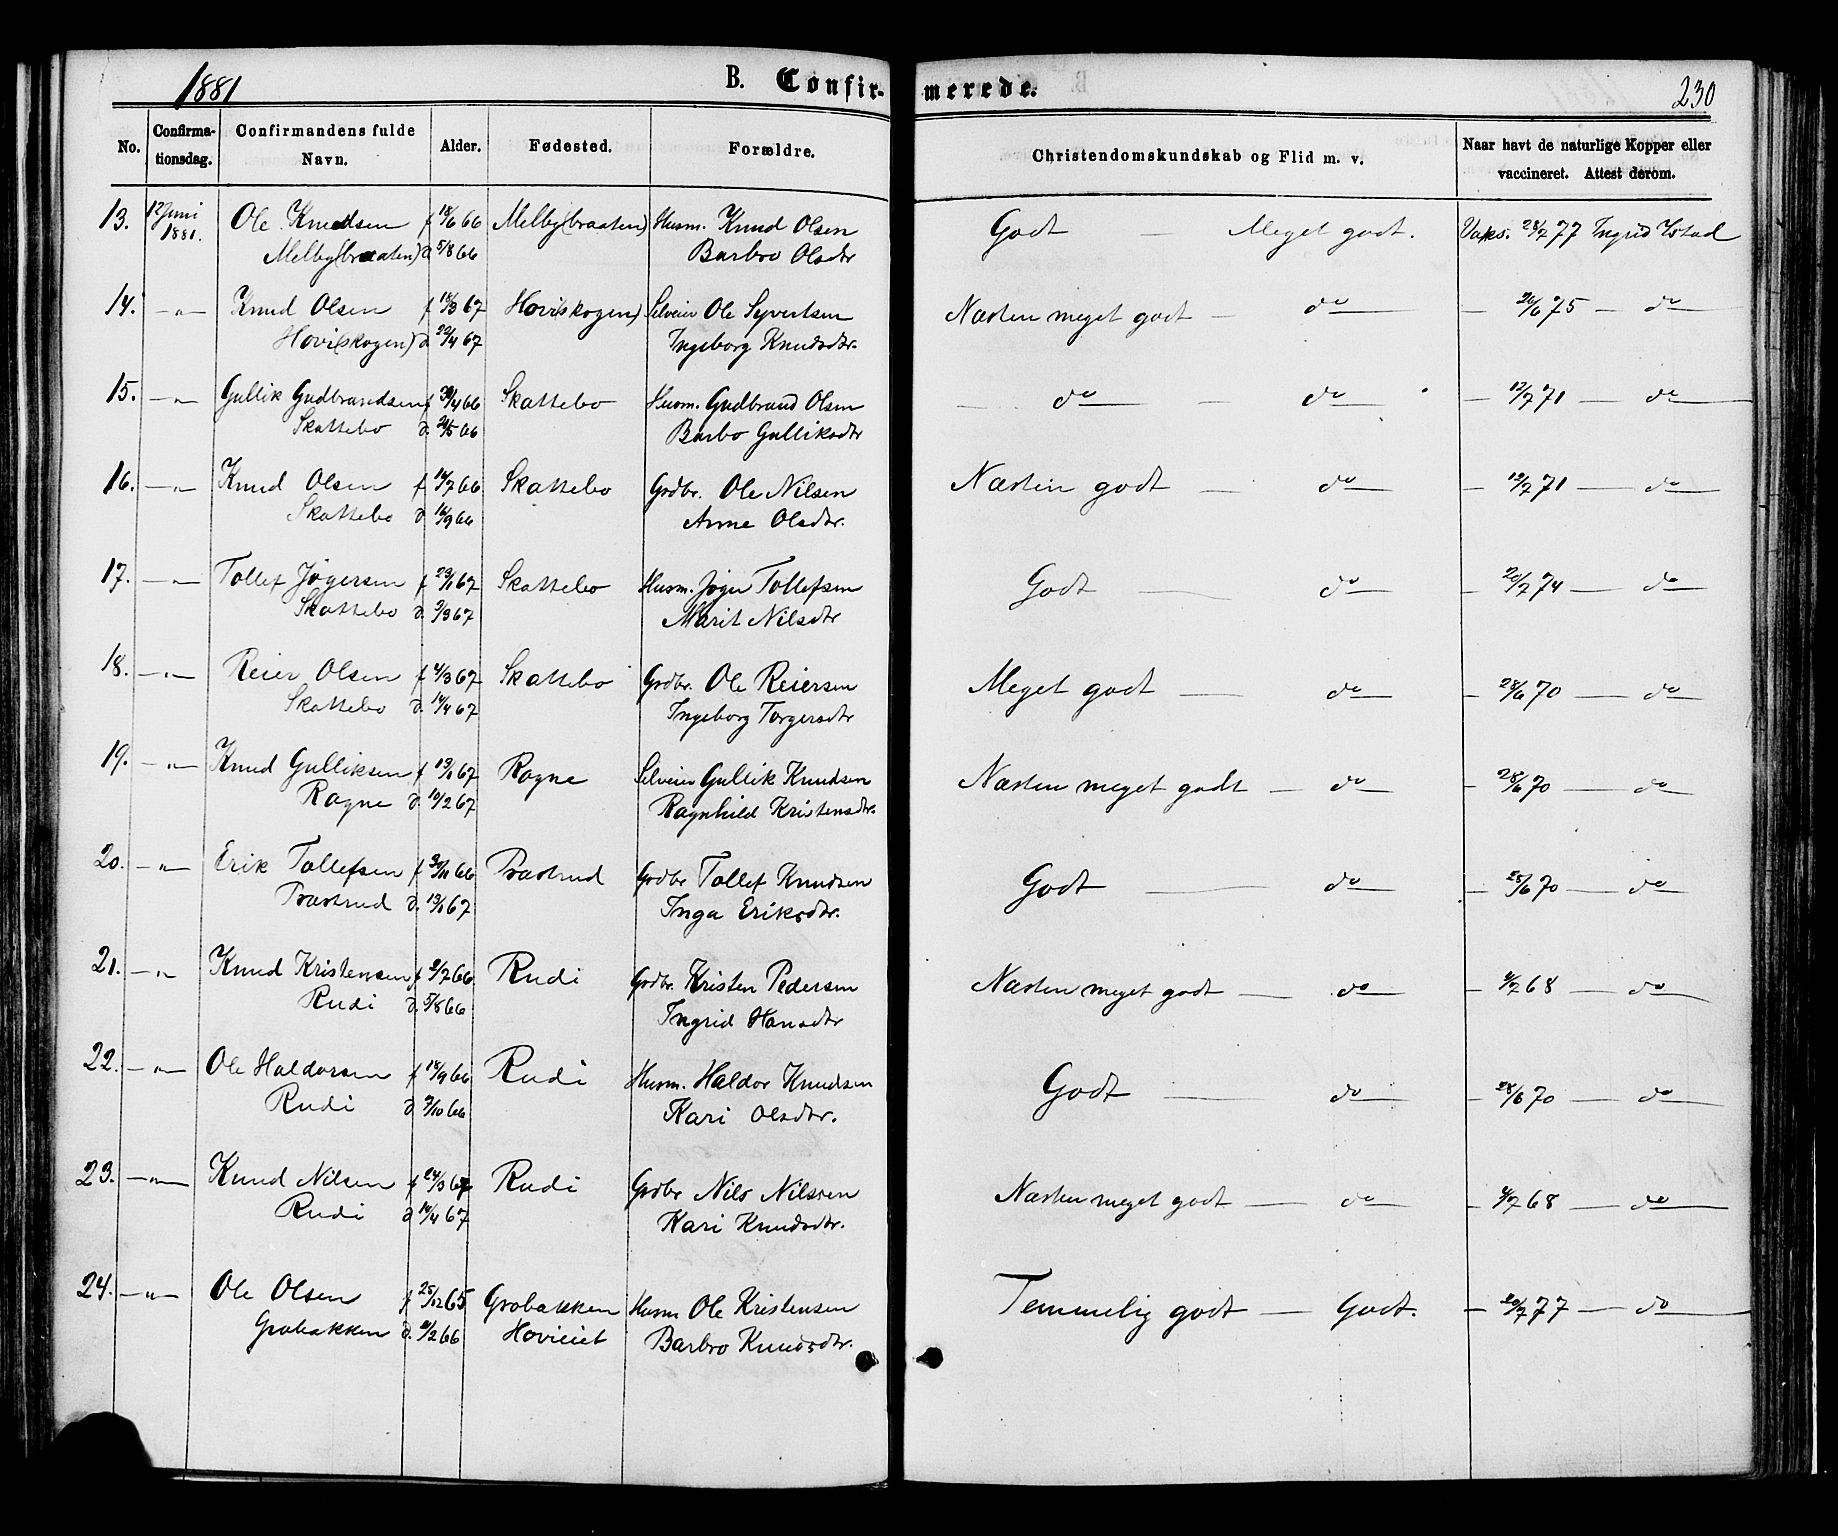 1881
B. Confirmerede.
230
No.
Confirmationsdag.
Confirmandens fulde Navn.
Alder.
Fødested.
Forældre.
Christendomskundskab og Flid m. v.
Naar havt de naturlige Kopper eller vaccineret. Attest derom.
13. 12 Juni Ole Knudsen f 18/6 66 Melby(braaten) Husm. Knud Olsen Godt — Meget godt. Vaks. 28/7 77 Ingrid Ystad
1881. Melby(braaten) d 5/8 66 Barbro Olsdtr
14. —"— Knud Olsen f 18/3 67 Hovi(skogen) Selveier Ole Syvertsen Næsten meget godt — do — 26/6 75 — do
Hovi(skogen) d 22/4 67 Ingeborg Knudsdtr.
15. —"— Gullik Gudbrandsen f 20/4 66 Skattebo Husm. Gudbrand Olsen — do — do — 12/7 71 — do
Skattebo d. 21/5 66 Barbo Gulliksdtr
16. —"— Knud Olsen f 14/7 66 Skattebo Grdbr. Ole Nilsen Næsten godt — do — 19/7 71 — do
Skattebo d 16/9 66 Anne Olsdtr.
17. —"— Tollef Jøgersen f 29/1 67 Skattebo Husm. Jøger Tollefsen Godt — do — 20/7 74 — do
Skattebo d. 3/3 67 Marit Nilsdtr
18. —"— Reier Olsen f 4/3 67 Skattebo Grdbr. Ole Reiersen Meget godt — do — 28/6 70 — do
Skattebo d. 14/4 67 Ingeborg Torgersdtr
19. —"— Knud Gulliksen f 13/1 67 Rogne Selveier Gullik Knudsen Næsten meget godt — do — 28/6 70 — do
Rogne d. 10/2 67 Ragnhild Kristensdtr.
20. —"— Erik Tollefsen f 30/11 66 Præstrud Grdbr Tollef Knudsen Godt — do — 28/6 70 — do
Præstrud d. 13/1 67 Inga Eriksdtr.
21. —"— Knud Kristensen f 2/7 66 Rudi Grdbr. Kristen Pedersen Næsten meget godt — do — 4/7 68 — do
Rudi d. 5/8 66 Ingrid Hansdtr
22. —"— Ole Haldorsen f 18/9 66 Rudi Husm. Haldor Knudsen Godt — do — 28/6 70 — do
Rudi d 7/10 66 Kari Olsdtr.
23. —"— Knud Nilsen f 24/3 67 Rudi Grdbr Nils Nilssen Næsten meget godt — do — 4/7 68 — do
Rudi d 14/4 67 Kari Knudsdtr.
24. —"— Ole Olsen f 25/12 65 Grobakken Husm Ole Kristensen Temmelig godt — Godt. — 20/7 77 — do
Grobakken d. 2/2 66 Hovieiet Barbro Knudsdtr.